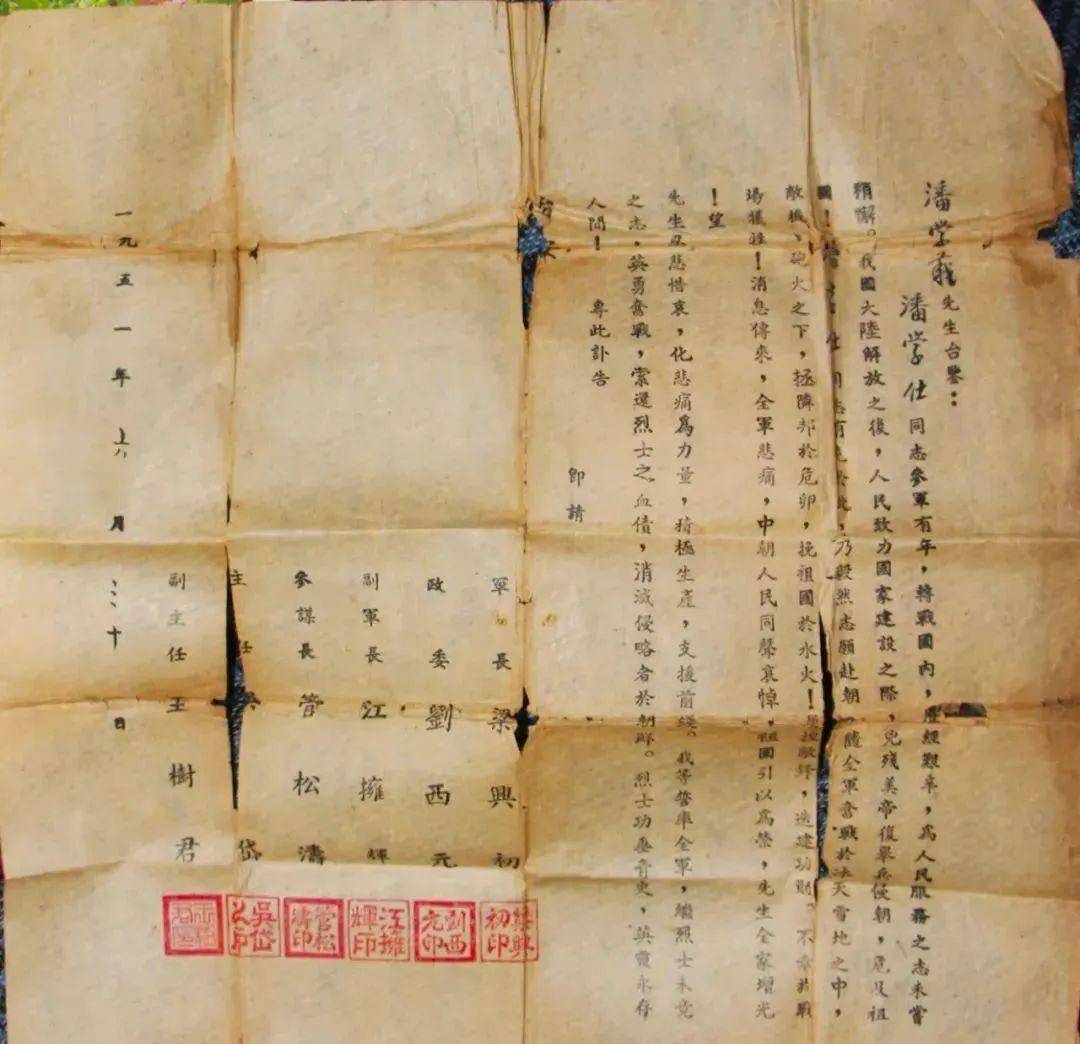 潘学義先生台鑒：
潘学仕同志參軍有年，轉戰國內，歷經艱辛，為人民服務之志未嘗
稍懈。我國大陸解放之後，人民致力國家建設之際，兇殘美帝復舉兵侵朝，危及祖
國！潘学仕同志有，乃毅然志願赴朝，隨全軍奮戰於冰天雪地之中，
敵機、砲火之下，拯隣邦於危卵，挽祖國於水火！，迭建功勛。不幸於戰
場犧牲！消息傳來，全軍悲痛，中朝人民同聲哀悼，祖國引以為榮，先生全家增光
！望
先生忍悲惜哀，化悲痛為力量，積極生產，支援前綫。我等誓率全軍，繼烈士未竟
之志，英勇奮戰，索還烈士之血債，消滅侵略者於朝鮮。烈士功垂青史，英靈永存
人間！　專此訃告
即請
台安
軍長梁興初
政委劉西元
副軍長江擁輝
參謀長管松濤
主任吳岱
副主任王樹君
一九五一年六月三十日
梁興初印
劉西元印
江擁輝印
管松濤印
吳岱之印